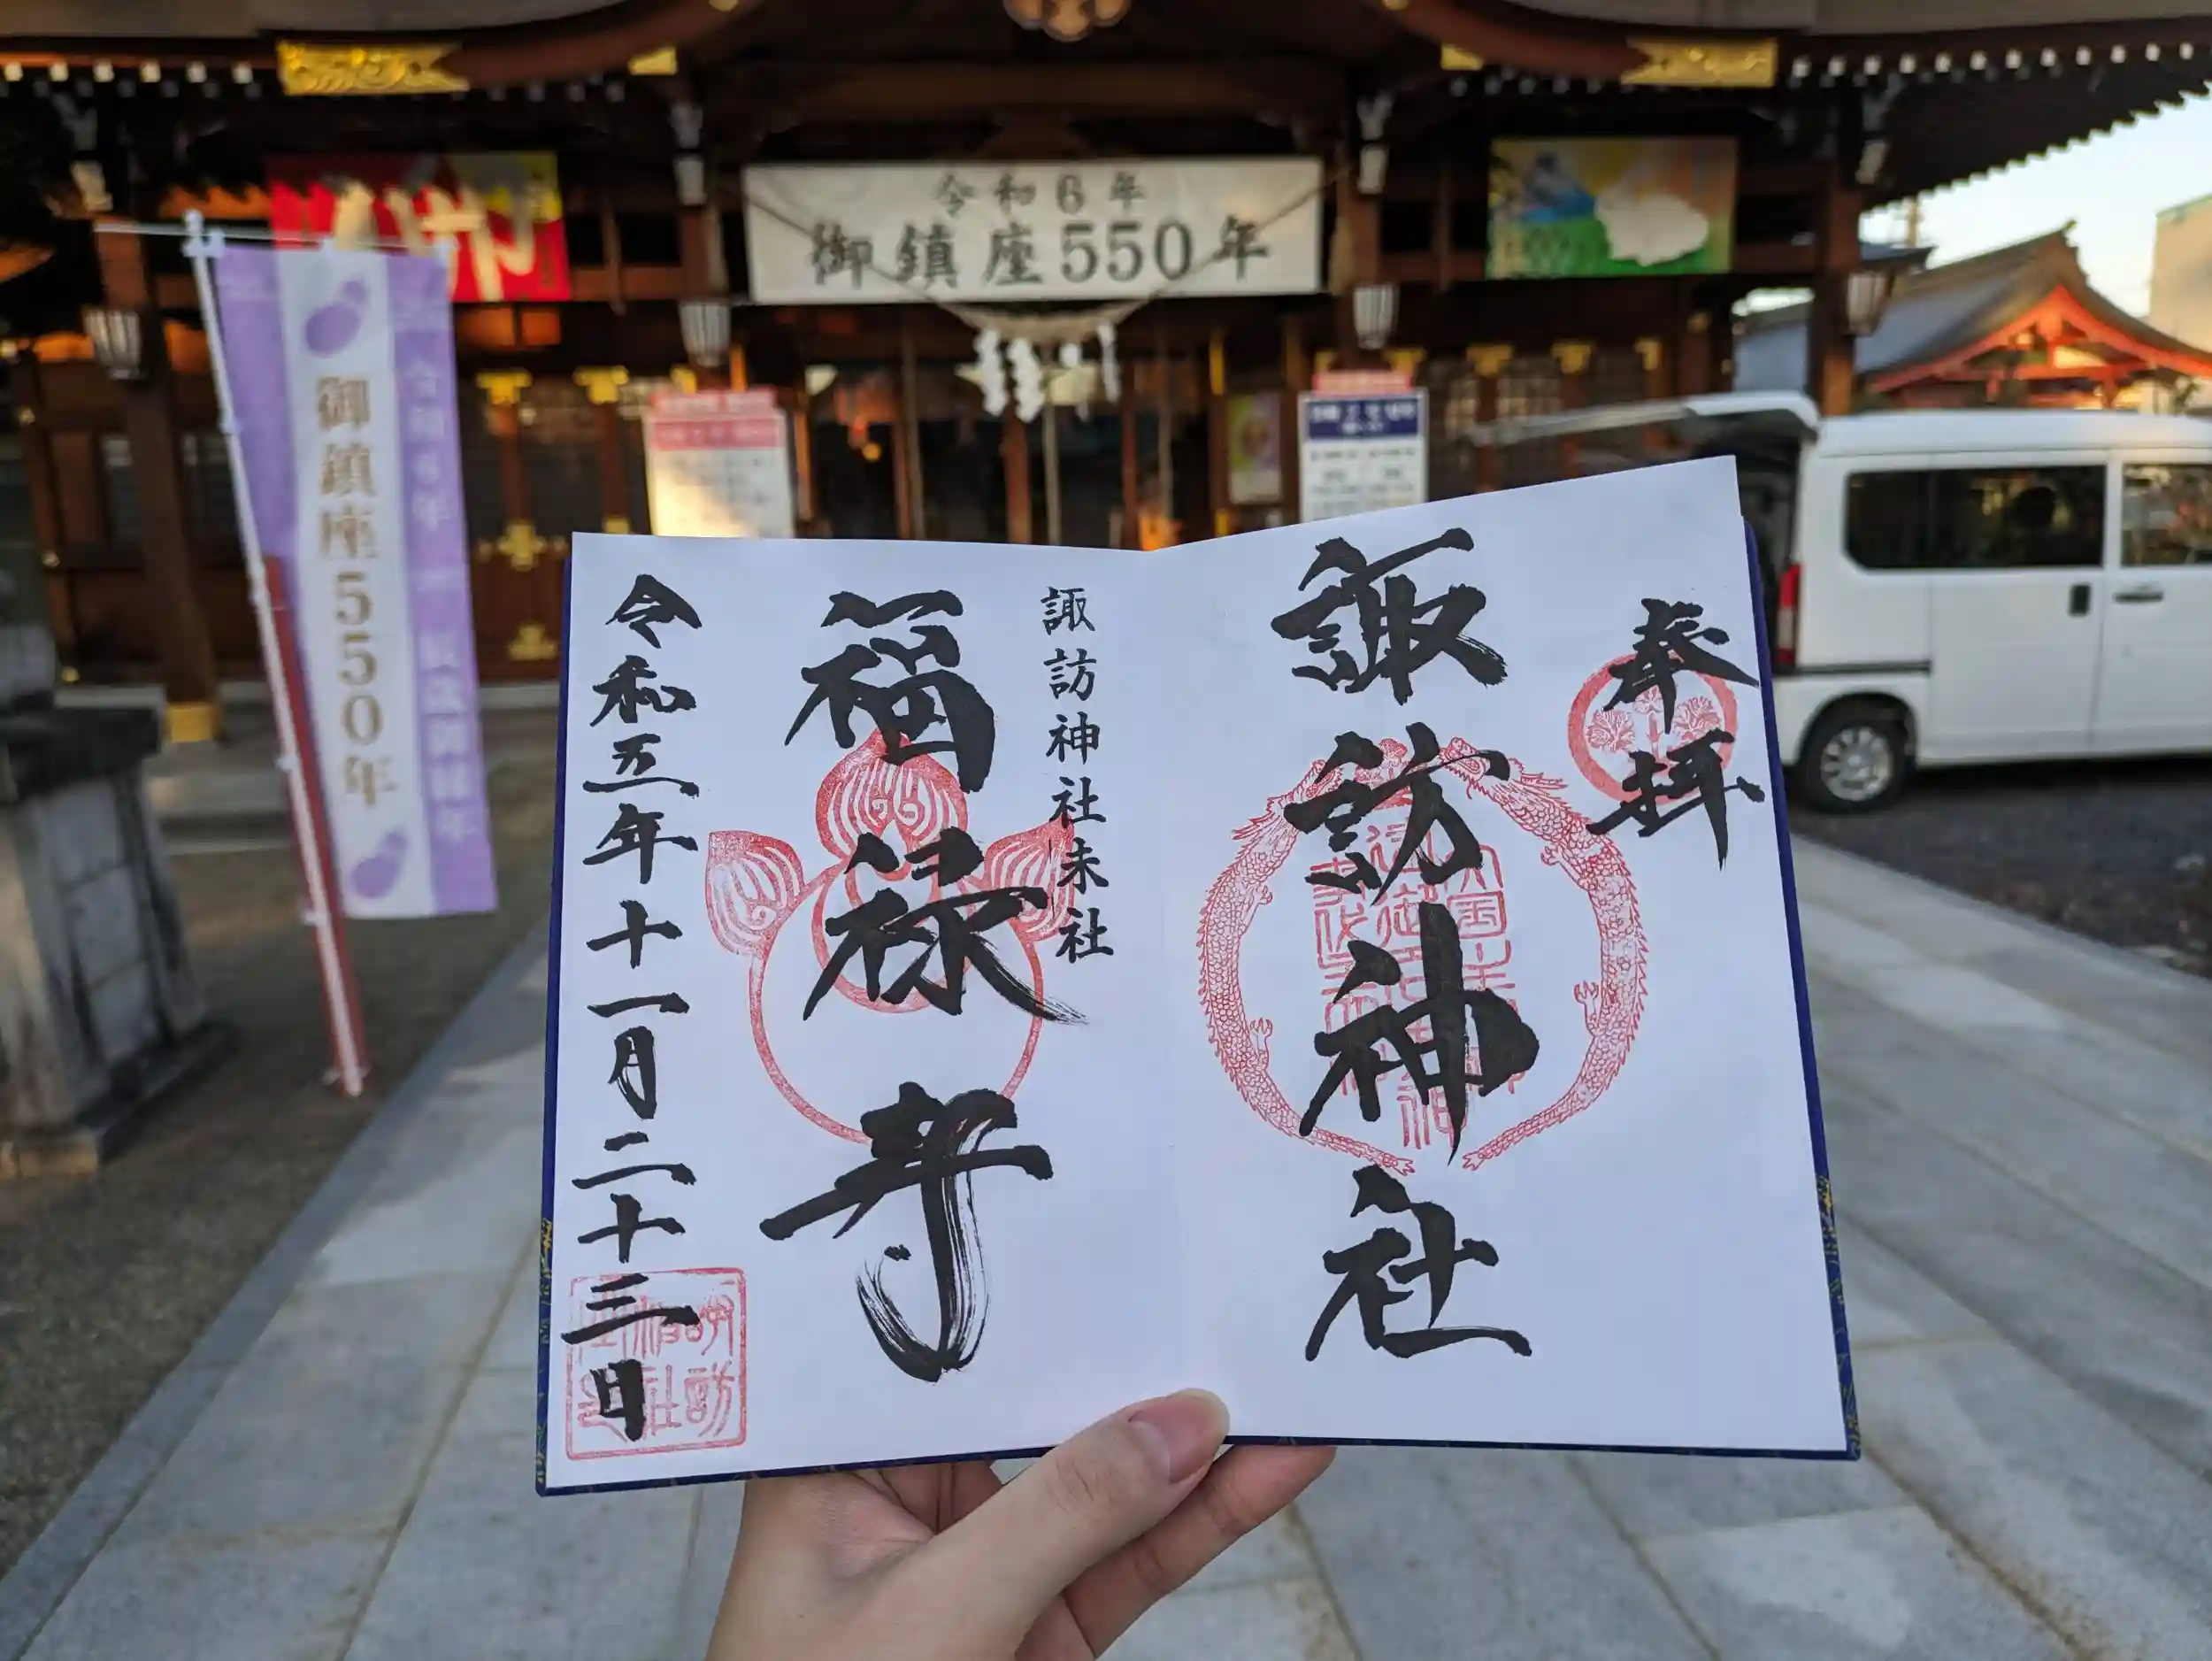 令和6年
御鎮座550年
御鎮座550年
令和6年
奉拝
諏訪神社
諏訪神社末社
福禄寿
令和五年十一月二十三日